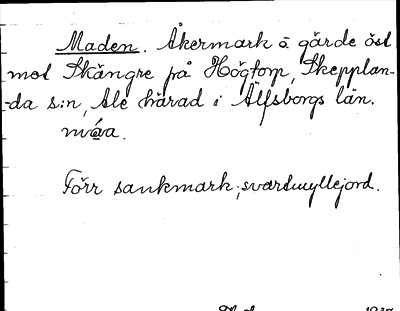 Maden. Åkermark å gärde öst
mot Skängre på Högtorp, Skepplan-
-da s:n, Ale härad i Älfsborgs län.
måa.
Förr sankmark; svartmyllejord.